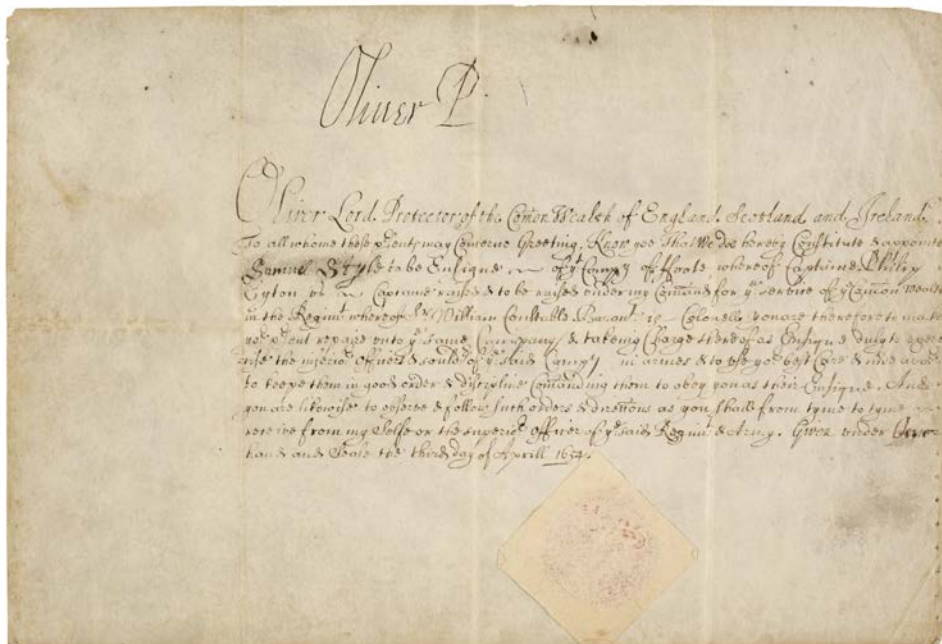 Oliver P
Oliver Lord Protector of the Com̄on Wealth of England Scotland and Ireland
To all whome these p̄sents may Concerne Greeting, Know yee That We doe hereby Constitute & appointe
Samuel to be Ensigne of yͭ Compͣy of ffoote whereof Captaine Phillip
Eyton is Captaine raised & to be raised under my Com̄and for yͤ service of yͤ Com̄on Wealth
in the Regimͭ whereof Sͬ William Constable Baronͭ is Colonell you are therefore to make
yoͬ p̄sent repaire unto yͤ same Company & takeing Charge thereof as Ensigne duly to exer
cise the inferioͬ Officers & souldͬs of yͤ said Compͣy in armes & to use yoͬ best Care &
to keepe them in good order & discipline Com̄anding them to obey you as their Ensigne. And
you are likewise to observe & follow such orders & directions as you shall from tyme to tyme
receive from my Selfe or the superioͬ Officers of yͤ said Regimͭ & Army. Given under
hand and Seale the third day of Aprill 1654.